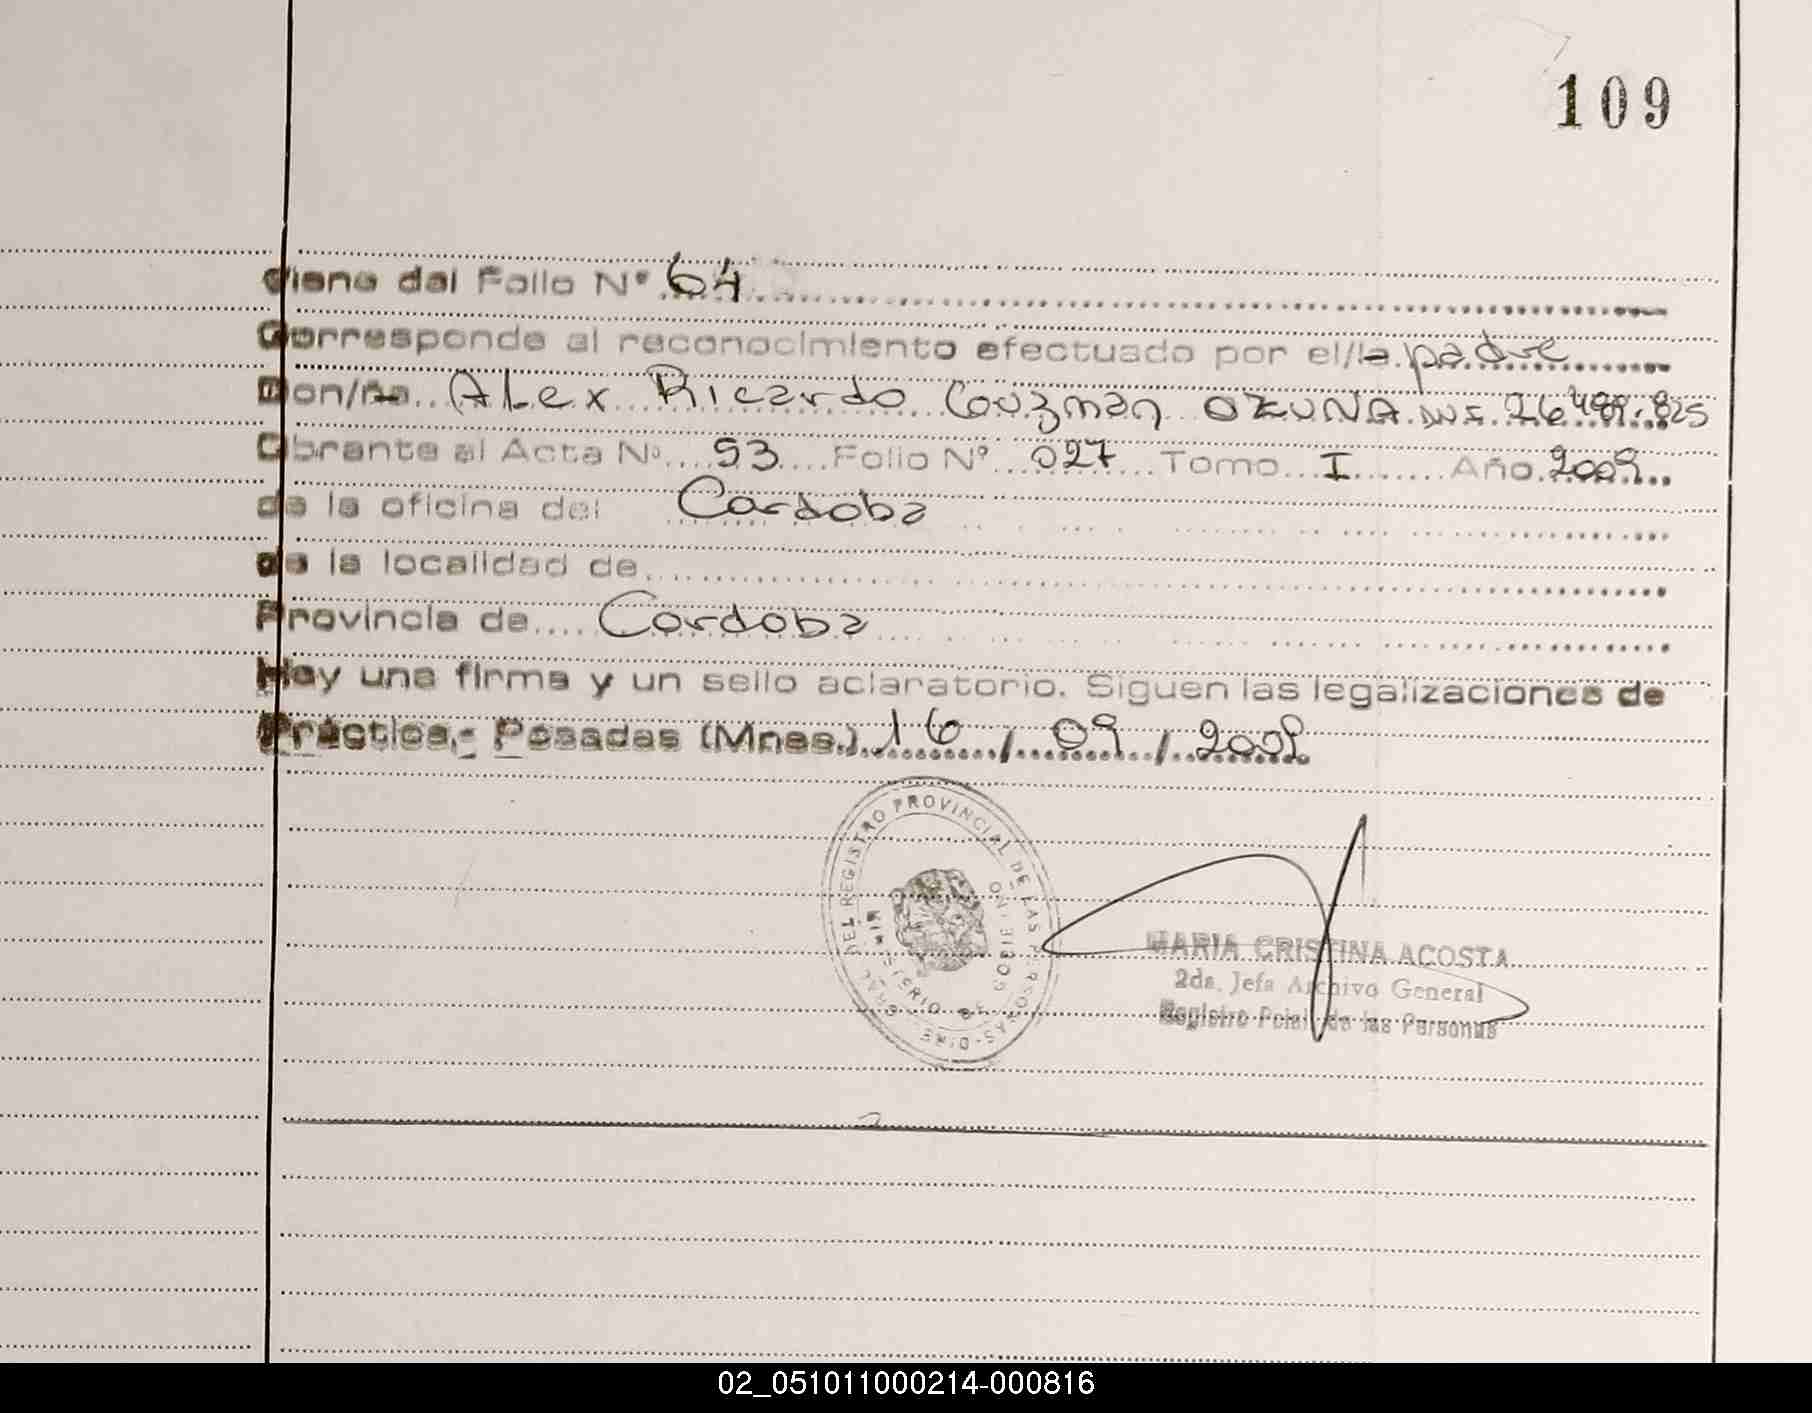 109
Viene del Folio Nº 64
Corresponde al reconocimiento efectuado por el/la padre
Don/ña Alex Ricardo Guzman OZUNA DNI. 26.489.825
Obrante al Acta Nº 53 Folio Nº 027 Tomo I Año 2009
de la oficina del Cordoba
de la localidad de
Provincia de Cordoba
Hay una firma y un sello aclaratorio. Siguen las legalizaciones de
Práctica.- Posadas (Mnes.) 16 / 09 / 2009
DEL REGISTRO PROVINCIAL DE LAS PERSONAS - DIRE GRAL
MINISTERIO DE GOBIERNO
MARIA CRISTINA ACOSTA
2da. Jefa Archivo General
Registro Pcial. de las Personas
02_051011000214-000816